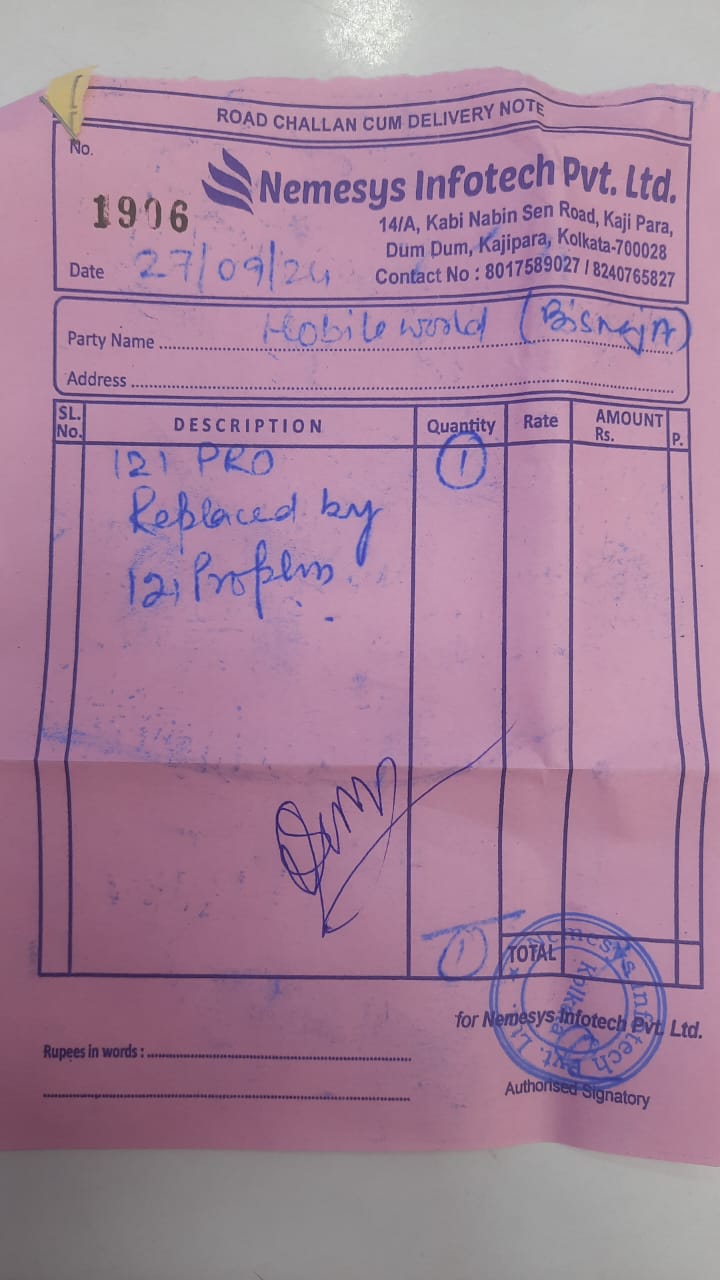 ROAD CHALLAN CUM DELIVERY NOTE
No.
1906
Nemesys Infotech Pvt. Ltd.
14/A, Kabi Nabin Sen Road, Kaji Para,
Dum Dum, Kajipara, Kolkata-700028
Contact No : 8017589027 / 8240765827
Date 27/09/24
Party Name Mobile world
Address
SL. No. DESCRIPTION Quantity Rate AMOUNT Rs. P.
121 PRO 1
Replaced by
121 Proplus
1 TOTAL
for Nemesys Infotech Pvt. Ltd.
Nemesys Infotech Pvt. Ltd. Kolkata
Rupees in words :
Authorised Signatory